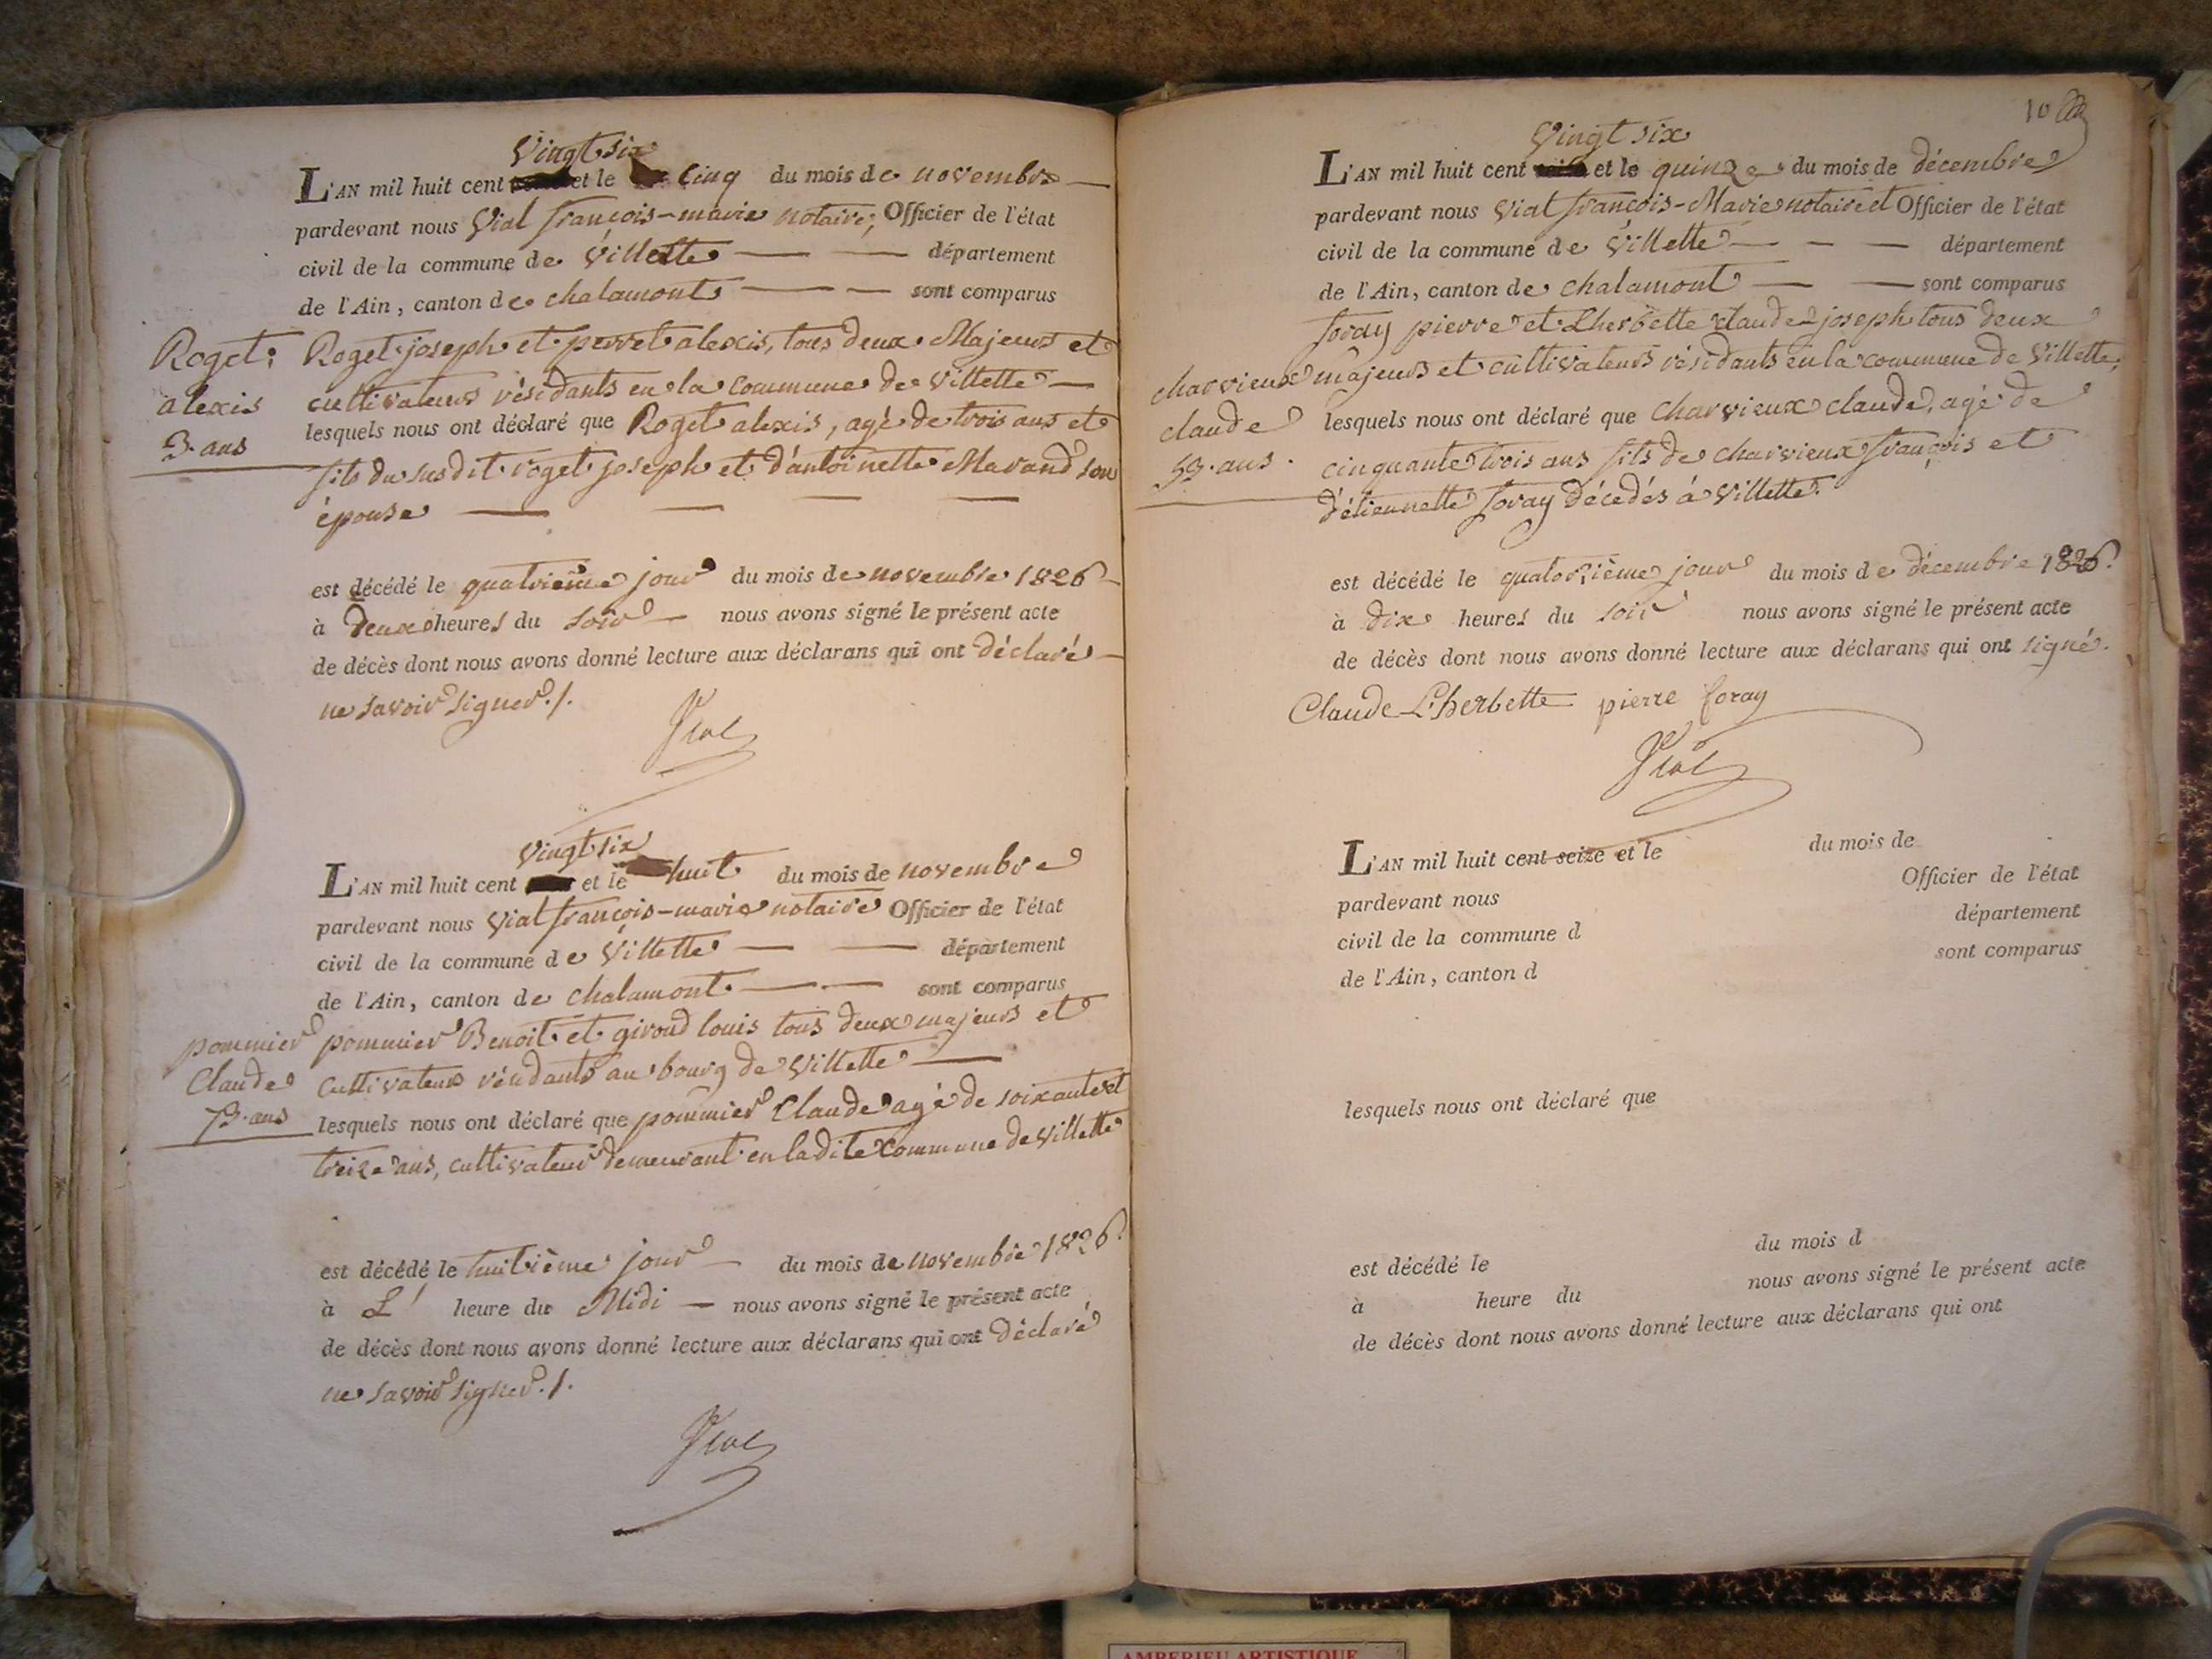 Vingt six
L'AN mil huit cent et le Cinq du mois de novembre
pardevant nous Vial françois-marie notaire, Officier de l'état
civil de la commune de Villette département
de l'Ain, canton de chalamont sont comparus
Roget joseph et perret alexis, tous deux Majeurs et
cultivateurs résidants en la commune de Villette
lesquels nous ont déclaré que Roget alexis, agé de trois ans et
fils du susdit roget joseph et d'antoinette Marand son
épouse
Roget
alexis
3. ans
est décédé le quatrième jour du mois de novembre 1826
à Deux heures du soir nous avons signé le présent acte
de décès dont nous avons donné lecture aux déclarans qui ont déclaré
ne savoir signer ./.
Vial
Vingt six
L'AN mil huit cent et le huit du mois de novembre
pardevant nous Vial françois-marie notaire Officier de l'état
civil de la commune de Villette département
de l'Ain, canton de chalamont sont comparus
pommier Benoit et giroud louis tous deux majeurs et
cultivateurs résidants au bourg de Villette
lesquels nous ont déclaré que pommier Claude agé de soixante et
treize ans, cultivateur demeurant en ladite commune de Villette
pommier
Claude
73. ans
est décédé le huitième jour du mois de novembre 1826.
à L' heure du Midi nous avons signé le présent acte
de décès dont nous avons donné lecture aux déclarans qui ont déclaré
ne savoir signer ./.
Vial
10
Vingt six
L'AN mil huit cent seize et le quinze du mois de décembre
pardevant nous Vial françois-Marie notaire et Officier de l'état
civil de la commune de Villette département
de l'Ain, canton de chalamont sont comparus
foray pierre et Lherbette claude-joseph tous deux
majeurs et cultivateurs résidants en la commune de Villette,
lesquels nous ont déclaré que charvieux claude, agé de
cinquante trois ans fils de charvieux françois et
d'étiennette foray décédés à Villette.
charvieux
claude
53. ans.
est décédé le quatorzième jour du mois de décembre 1826.
à dix heures du soir nous avons signé le présent acte
de décès dont nous avons donné lecture aux déclarans qui ont signé.
Claude L'herbette pierre foray
Vial
L'AN mil huit cent seize et le du mois de
pardevant nous Officier de l'état
civil de la commune d département
de l'Ain, canton d sont comparus
lesquels nous ont déclaré que
est décédé le du mois d
à heure du nous avons signé le présent acte
de décès dont nous avons donné lecture aux déclarans qui ont
AMBERIEU ARTISTIQUE